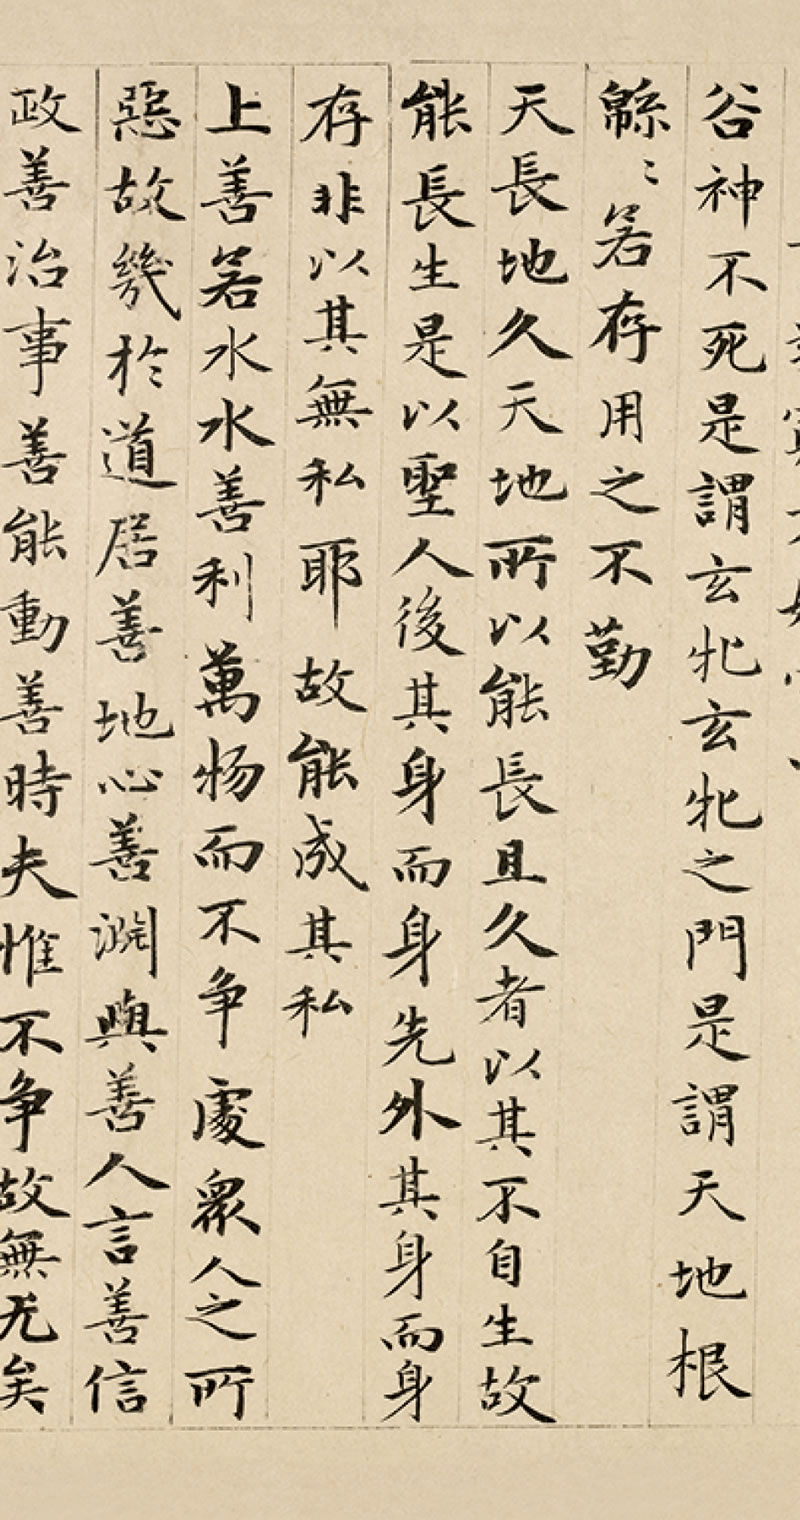 谷神不死是謂玄牝玄牝之門是謂天地根
緜〻若存用之不勤
天長地久天地所以能長且久者以其不自生故
能長生是以聖人後其身而身先外其身而身
存非以其無私耶故能成其私
上善若水水善利萬物而不争處衆人之所
惡故幾於道居善地心善淵與善人言善信
政善治事善能動善時夫惟不争故無尤矣